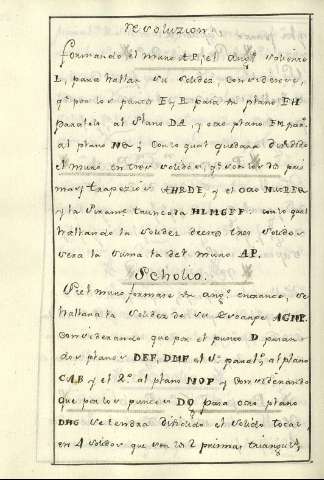 revoluzion
formando el muro AP, el ang.º saliente
L, para hallar su solidez, considerese,
q.e por los puntos E, y B pasa un plano EH
paralelo al plano DA, y otro plano EM par.º
al plano NQ; con lo qual quedara dividido
el muro en tres solidos, q.e son los dos pris
mas trapezios AHBDE, y el otro
y la Piram. truncada HLMGEF: con lo qual
hallando la solidez de estos tres solidos
sera la suma la del muro AP.
Scholio.
Si el muro formase un ang.º entrante, se
hallaria la solidez de su AGNP.
considerando que por el punto D, pasan
dos planos DEF, DMF el 1.º paral.º al plano
CAB y el 2.º al plano NOP y considerando
que por los puntos DQ pasa otro plano
DHG se tendra dividido el solido total
en 4 solidos que son los 2 prismas triangul.s